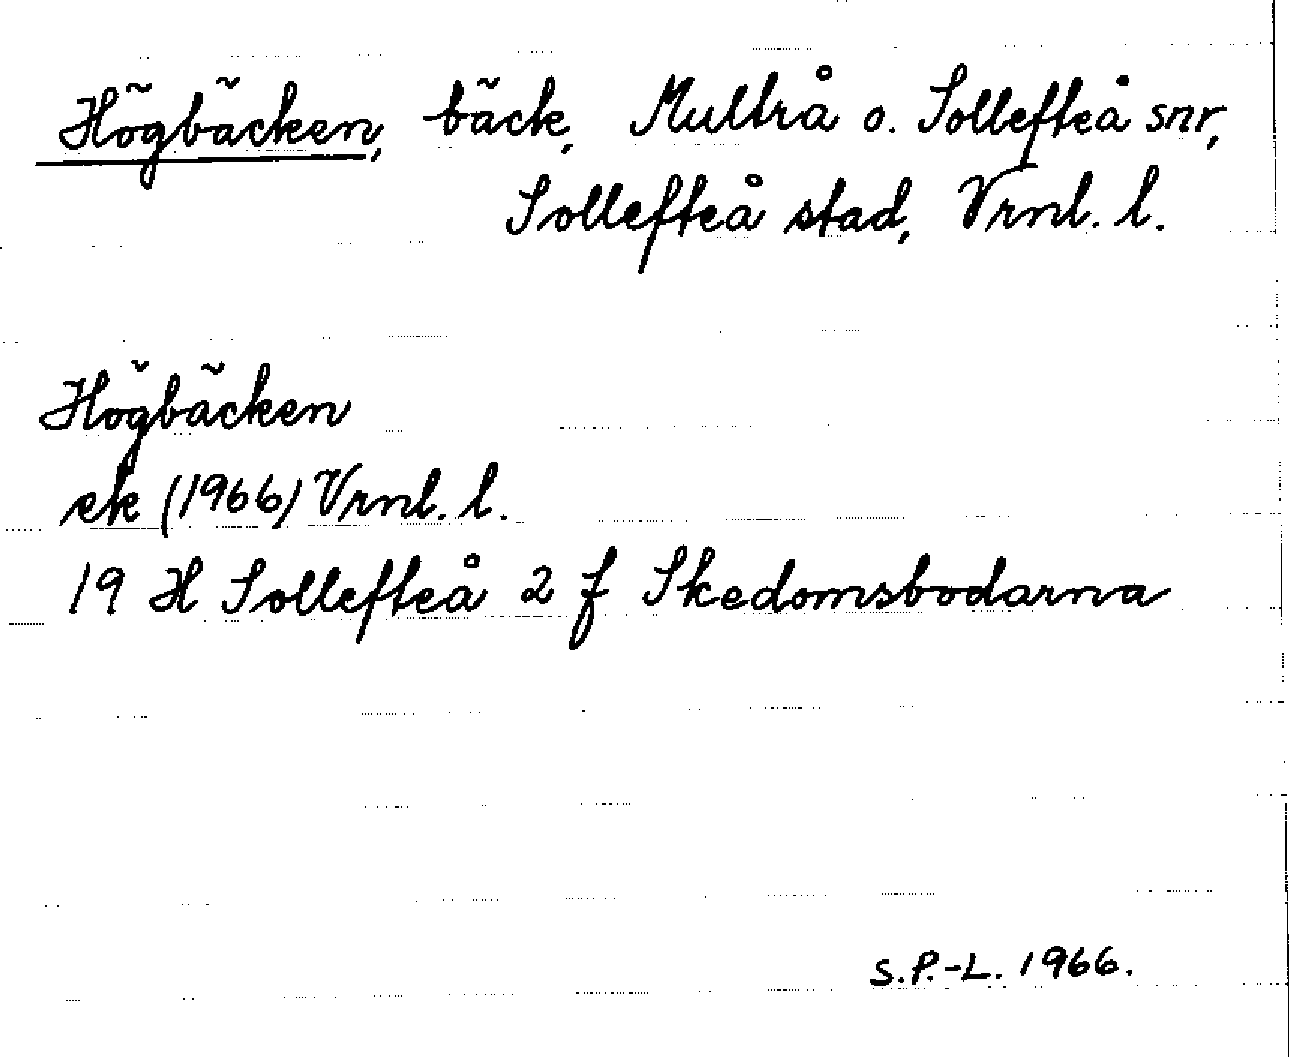 Högbäcken, bäck, Multrå o. Sollefteå snr,
Sollefteå stad, Vrnl. l.
Högbäcken
ek (1966) Vrnl. l.
19 H Sollefteå 2 f Skedomsbodarna
S.P.-L. 1966.